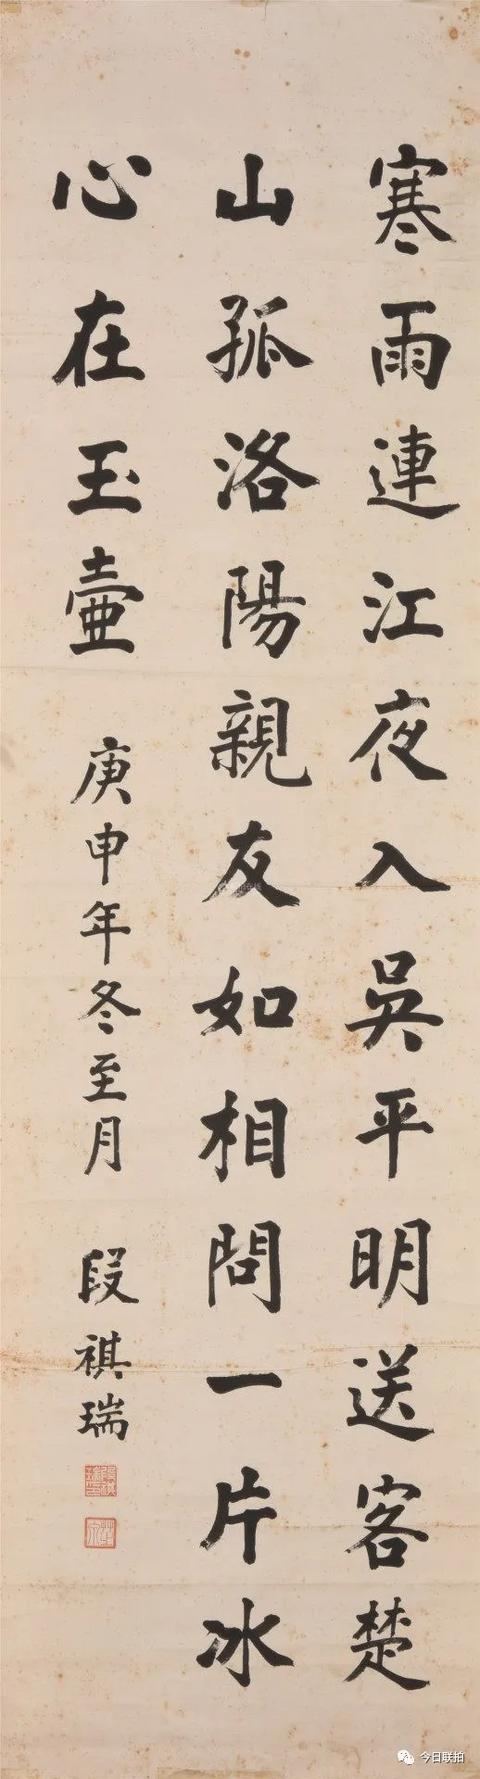 寒雨連江夜入吳平明送客楚
山孤洛陽親友如相問一片冰
心在玉壺
庚申年冬至月
段祺瑞
今日联拍